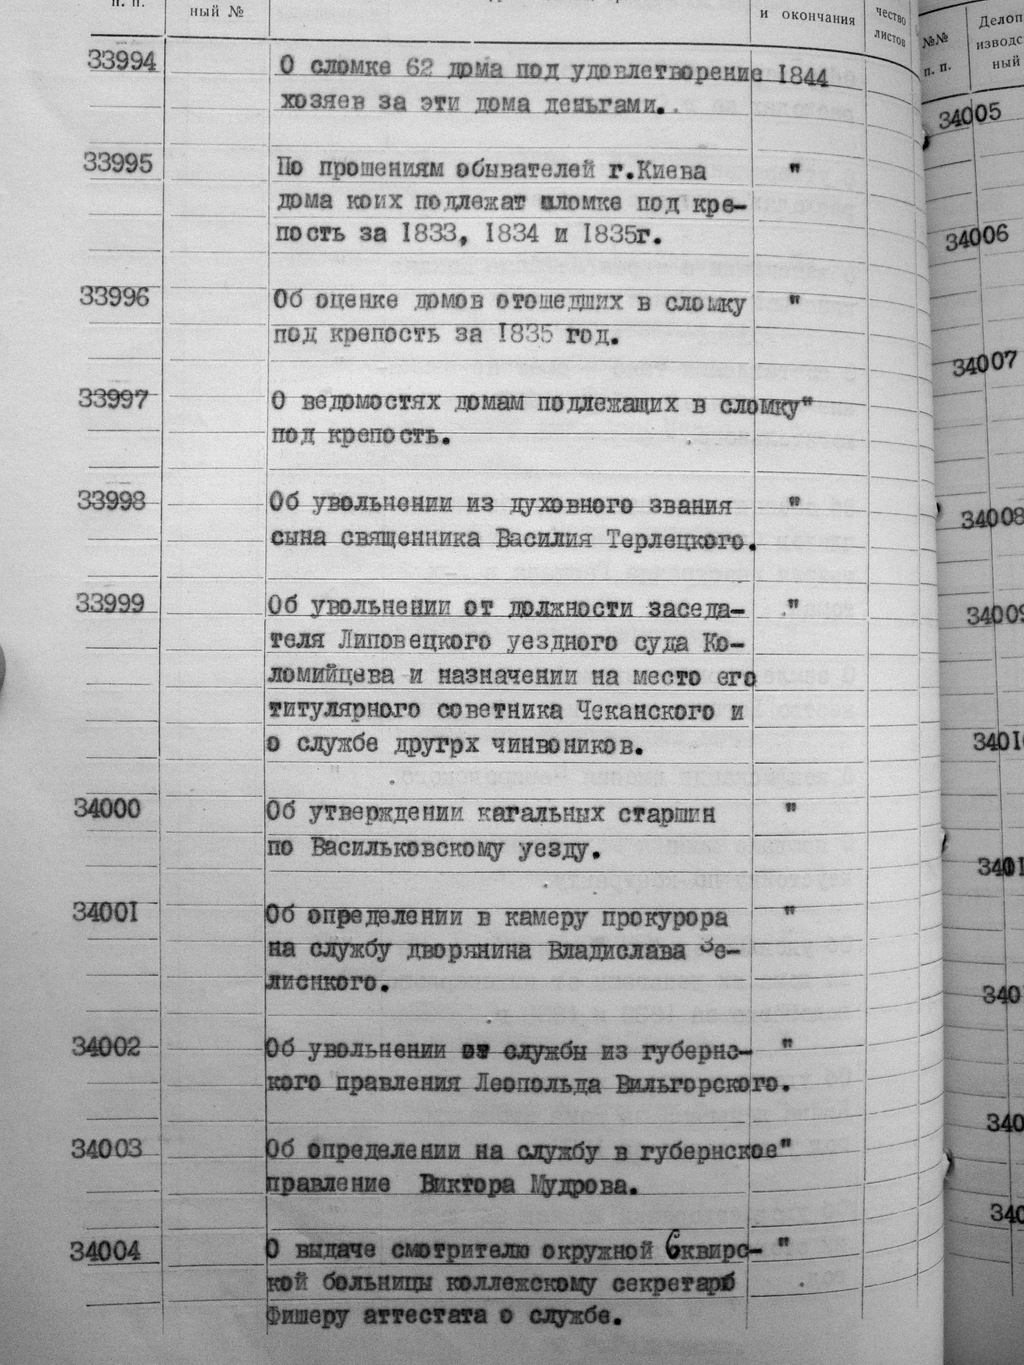 п. п. ный № и окончания чество листов
33994 О сломке 62 дома под удовлетворение 1844
хозяев за эти дома деньгами.
33995 По прошениям обывателей г.Киева "
дома коих подлежат сломке под кре-
пость за 1833, 1834 и 1835г.
33996 Об оценке домов отошедших в сломку "
под крепость за 1835 год.
33997 О ведомостях домам подлежащих в сломку"
под крепость.
33998 Об увольнении из духовного звания "
сына священника Василия Терлецкого.
33999 Об увольнении от должности заседа- "
теля Липовецкого уездного суда Ко-
ломийцева и назначении на место его
титулярного советника Чеканского и
о службе другрх чинвоников.
34000 Об утверждении кагальных старшин "
по Васильковскому уезду.
34001 Об определении в камеру прокурора "
на службу дворянина Владислава Зе-
лиснкого.
34002 Об увольнении от службы из губернс- "
кого правления Леопольда Вильгорского.
34003 Об определении на службу в губернское"
правление Виктора Мудрова.
34004 О выдаче смотрителю окружной Сквирс- "
кой больницы коллежскому секретарю
Фишеру аттестата о службе.
№№ п. п. Делоп изводс ный
34005
34006
34007
34008
34009